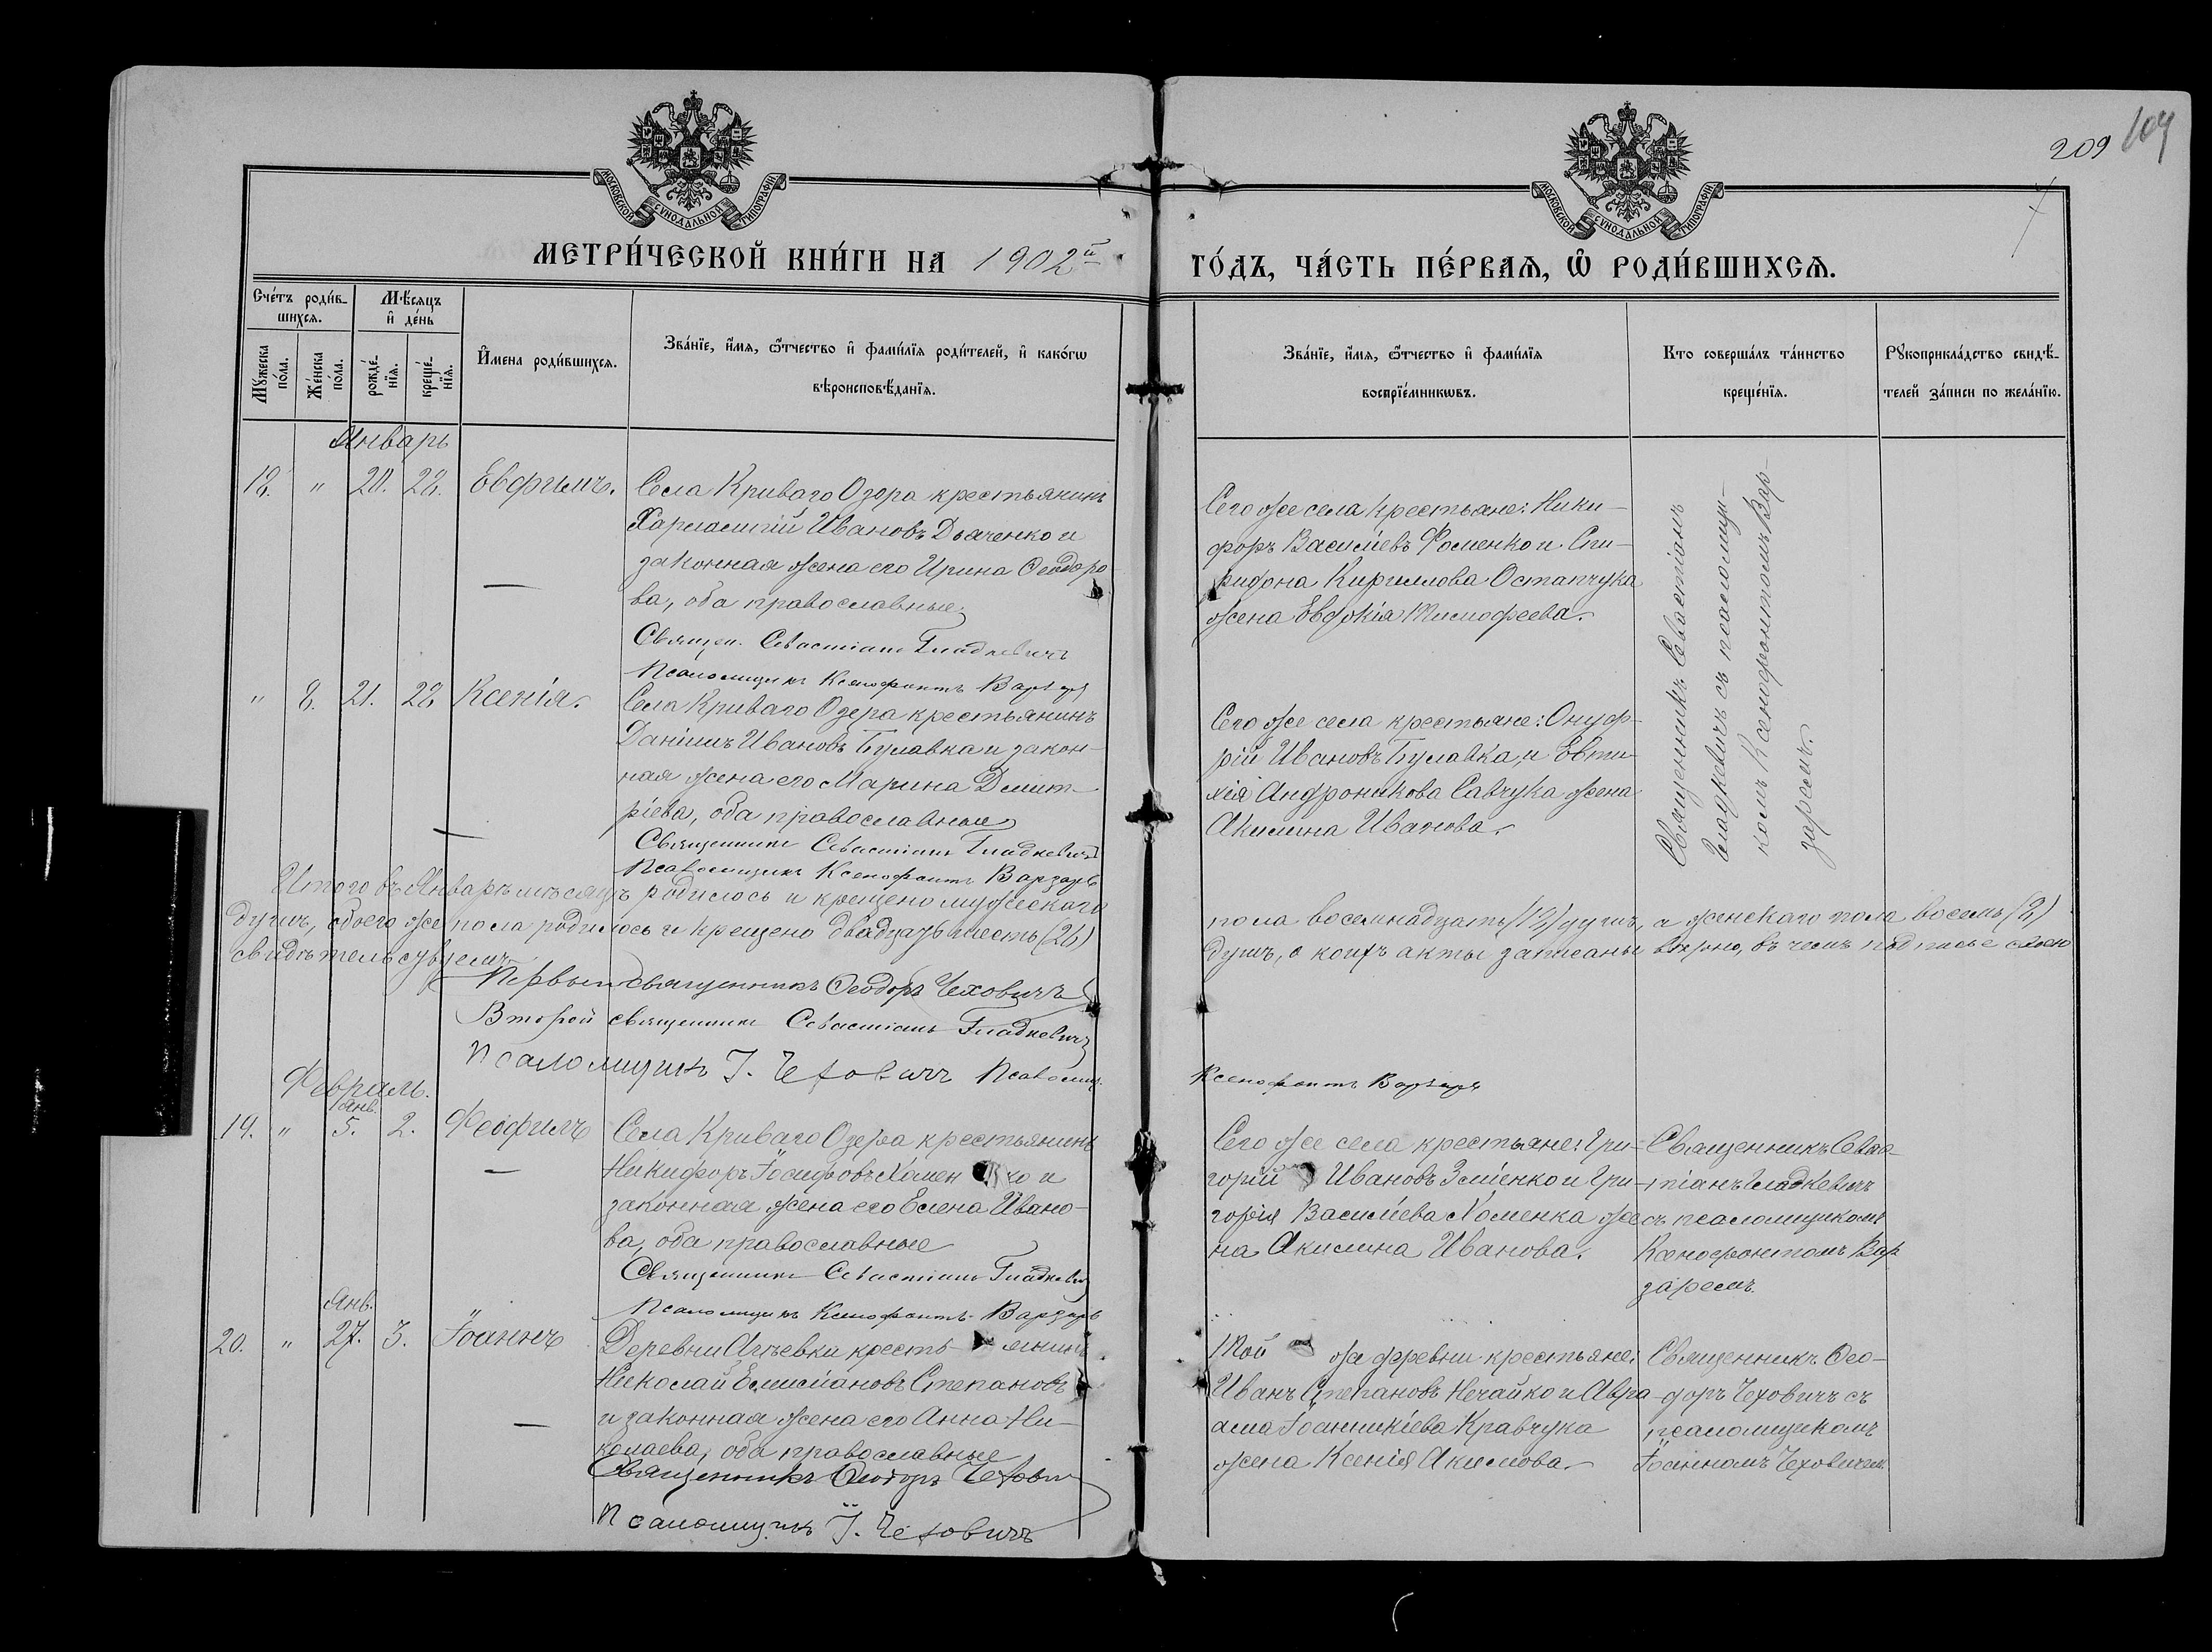 209
109
МОСКОВСКОЙ СѴНОДАЛЬНОЙ ТИПОГРАФІИ
МОСКОВСКОЙ СѴНОДАЛЬНОЙ ТИПОГРАФІИ
МЕТРИ́ЧЕСКОЙ КНИ́ГИ НА 1902й
ГО́ДЪ, ЧА́СТЬ ПЕ́РВАЯ, Ѡ РОДИ́ВШИХСЯ.
Счетъ родив-
шихся.
Мѣсяцъ
и день
Мужеска
пола.
Женска
пола.
рожде-
нія.
креще-
нія.
Имена родившихся.
Званіе, имя, ѿтчество и фамилія родителей, и какогѡ
вѣроисповѣданія.
Званіе, имя, ѿтчество и фамилія
воспріемникѡвъ.
Кто совершалъ таинство
крещенія.
Рукоприкладство свидѣ-
телей записи по желанію.
Январь
18. " 20. 28. Евфимъ.
Села Криваго Озера крестьянинъ
Харлампій Ивановъ Дьяченко и
законная жена его Ирина Ѳеодоро
ва, оба православные
Священ. Севастіанъ Гладкевичъ
Псаломщикъ Ксенофонтъ Варзарь
Сего же села крестьяне: Ники-
форъ Василіевъ Фоменко и Спи-
ридона Кириллова Остапчука
жена Евдокія Тимофеева.
Священникъ Севастіанъ
Гладкевичъ съ псаломщи-
комъ Ксенофонтомъ Вар-
заремъ.
" 8. 21. 28 Ксенія.
Села Криваго Озера крестьянинъ
Даніилъ Ивановъ Булавка и закон-
ная жена его Марина Димит-
ріева, оба православные
Священникъ Севастіанъ Гладкевичъ
Псаломщикъ Ксенофонтъ Варзарь
Сего же села крестьяне: Онуф-
рій Ивановъ Булавка, и Евти-
хія Андроникова Савчука жена
Акилина Иванова.
Итого въ Январѣ мѣсяцѣ родилось и крещено мужескаго
пола восемнадцать (18) душъ, а женскаго пола восемь (8)
душъ, обоего же пола родилось и крещено двадцать шесть (26)
душъ, о коихъ акты записаны вѣрно, въ чемъ подписью своею
свидѣтельствуемъ
Первый священникъ Ѳеодоръ Чеховичъ
Второй священникъ Севастіанъ Гладкевичъ
Псаломщикъ І. Чеховичъ Псаломщ.
Ксенофонтъ Варзарь
Февраль.
Янв.
19. " 5. 2. Феофилъ
Села Криваго Озера крестьянинъ
Никифоръ Іосифовъ Хомен ко и
законная жена его Елена Ивано-
ва, оба православные
Священникъ Севастіанъ Гладкевичъ
Псаломщикъ Ксенофонтъ Варзарь
Сего же села крестьяне: Гри-
горій Ивановъ Зміенко и Гри-
горія Василіева Хоменка же
на Акилина Иванова.
Священникъ Севас
тіанъ Гладкевичъ
съ псаломщикомъ
Ксенофонтомъ Вар
заремъ.
Янв.
20. " 27. 3. Іоаннъ
Деревни крестьянинъ
Николай Емиліановъ Степановъ
и законная жена его Анна Ни-
колаева, оба православные
Священникъ Ѳеодоръ Чехович
Псаломщикъ І. Чеховичъ
Той же деревни крестьяне:
Иванъ Степановъ Нечайко и Авра
ама Іоанникіева Кравчука
жена Ксенія Акимова.
Священникъ Ѳео-
доръ Чеховичъ съ
псаломщикомъ
Іоанномъ Чеховичемъ